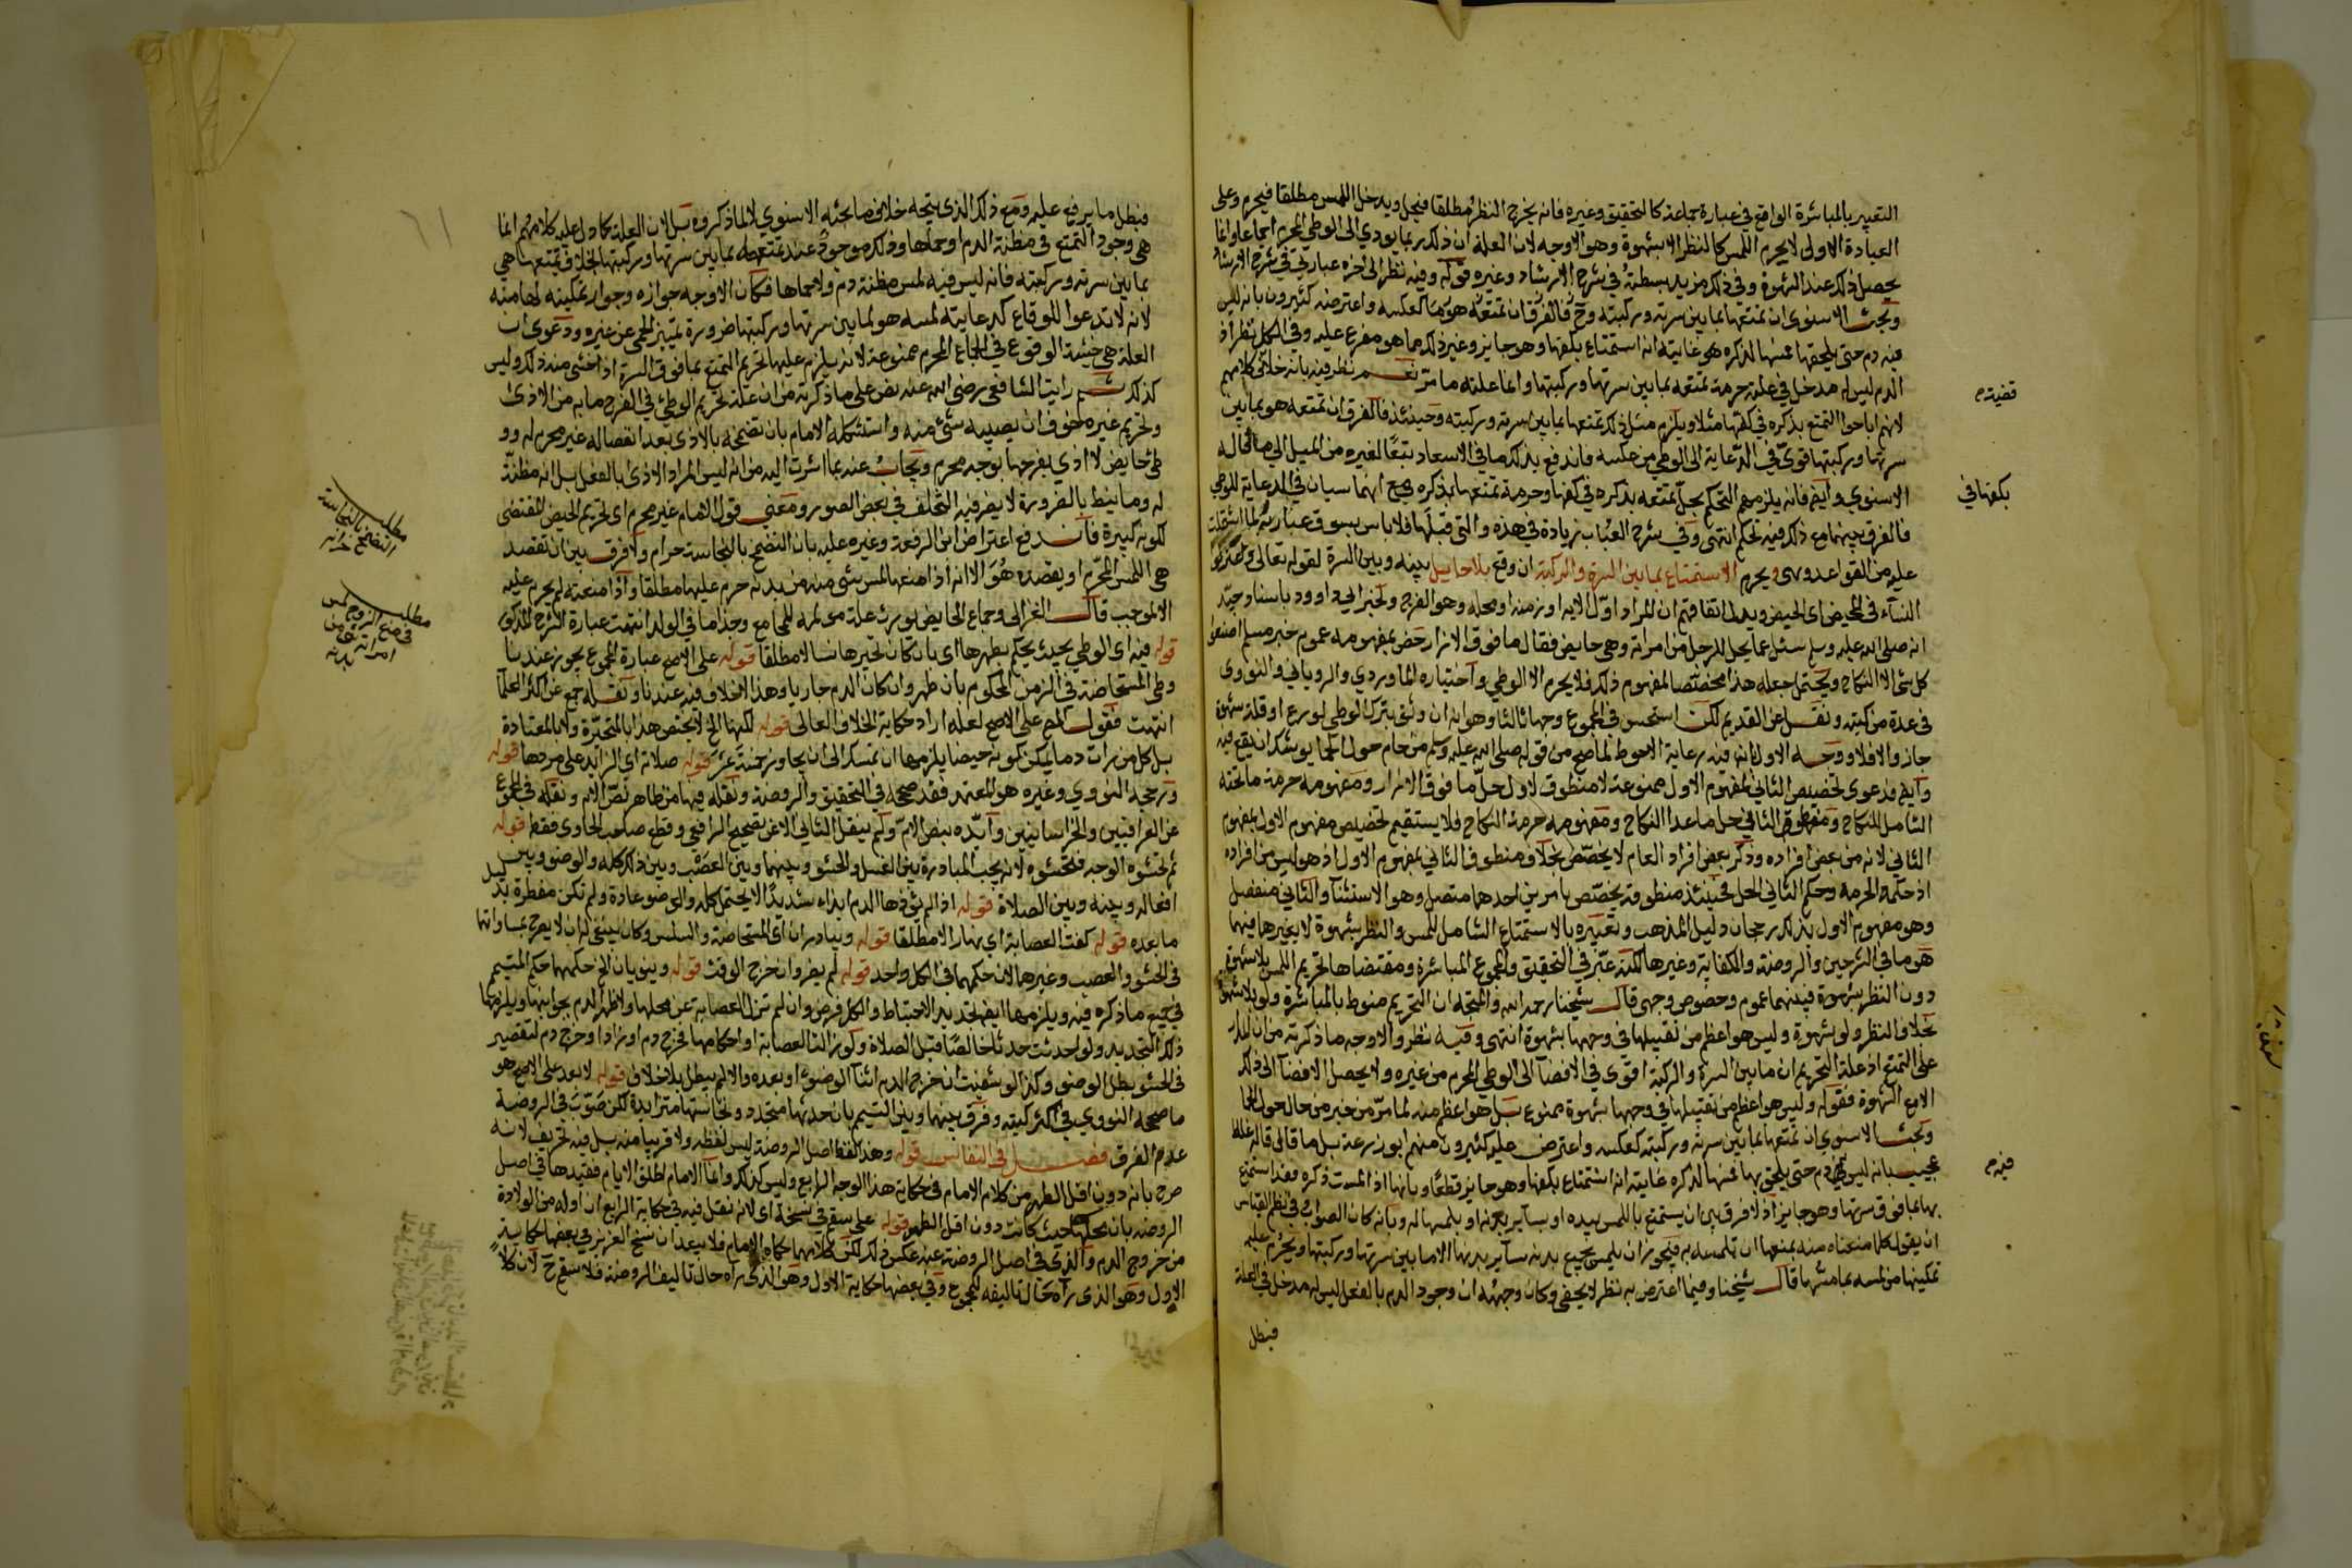 التعبير بالمباشرة الواقع في عبارة جماعة كالتحقيق وغيره فانه يخرج النظر مطلقا فيحل ويدخل اللمس مطلقا فيحرم وعلى
العبارة الاولى لا يحرم اللمس كالنظر الا بشهوة وهو الاوجه لان العلة ان ذلك ربما يودي الى الوطي المحرم اجماعا وانما
يحصل ذلك عند الشهوة وفي ذلك مزيد بسطته في شرح الارشاد وغيره قوله وفيه نظر الى اخره عبارتي في شرح الارشاد
وبحث الاسنوي ان تمتعها بما بين سرته وركبته وح فالفرق ان تمتعه هو كعكسه واعترضه كثيرون بانه ليس
فيه دم حتى يلحقها مسها لذكره هو غايته انه استمتاع بكفها وهو جايز وغير ذلك مما هو مفرع عليه وفي الكل نظر اذ
الدم ليس له مدخل في علة حرمة تمتعه بما بين سرتها وركبتها وانما علته ما مر نعم نظر فيه بانه خلاف كلامهم
لانهم اباحوا التمتع بذكره في كفها مثلا ويلزم مثل ذلك تمتعها بما بين سرته وركبته وحينئذ فالفرق ان تمتعه هو بما بين
سرتها وركبتها قوي في الدعاية الى الوطي من عكسه واندفع بذلك ما في الاسعاد تبعا لغيره من الميل الى ما قاله
الاسنوي وايض فانه يلزمهم التحكم بحل تمتعه بذكره في كفها وحرمة تمتعها بذكره مع انهما سيان في الدعاية للوطي
فالفرق بينهما مع ذلك فيه تحكم انتهى وفي شرح العباب زيادة في هذه والتي قبلها فلا باس بسوق عبارته لما اشتملت
عليه من القواعد وهي ويحرم الاستمتاع بما بين السرة والركبة ان وقع بلا حايل بينه وبين السرة لقوله تعالى فاعتزلوا
النساء في المحيض اي الحيض ويدل اتفاقهم ان المراد اول الاية او زمنه او محله وهو الفرج ولخبر ابي داوود باسناد جيد
انه صلى الله عليه وسلم سئل عما يحل للرجل من امراته وهي حايض فقال ما فوق الازار خص بمفهومه عموم خبر مسلم اصنعوا
كل شي الا النكاح ويحتمل جعله هذا مخصصا لمفهوم ذلك فلا يحرم الا الوطي واختاره الماوردي والروياني والنووي
في عدة من كتبه ونقل عن القديم لكن استحسن في المجموع وجها ثالثا وهو انه ان وثق بترك الوطي لورع او قلة شهوة
جاز والا فلا ووجه الاول انه فيه رعاية الاحوط لما صح من قوله صلى الله عليه وسلم من حام حول الحمى يوشك ان يقع فيه
وايض فدعوى تخصيص الثاني لمفهوم الاول ممنوعة لان منطوق الاول حل ما فوق الازار ومفهومه حرمة ما تحته
الشامل للنكاح ومنطوق الثاني حل ما عدا النكاح ومفهومه حرمة النكاح فلا يستقيم تخصيص مفهوم الاول بمفهوم
الثاني لانه من بعض افراده وذكر بعض افراد العام لا يخصص بخلاف منطوق الثاني بمفهوم الاول اذ هو ليس من افراده
اذ حكمه الحرمة وحكم الثاني الحل فحينئذ منطوقه يخصص بامرين احدهما متصل وهو الاستثنا والثاني منفصل
وهو مفهوم الاول بذلك رجحان دليل المذهب وتعبيره بالاستمتاع الشامل للمس والنظر بشهوة لا بغيرها فيهما
هو ما في الشرحين والروضة والكفاية وغيرها لكنه عبر في التحقيق والمجموع المباشرة ومقتضاها تحريم اللمس بلا شهوة
دون النظر بشهوة فبينهما عموم وخصوص وجهي قال شيخنا رحمه الله والمتجه ان التحريم منوط بالمباشرة ولو بلا شهوة
بخلاف النظر ولو بشهوة وليس هو اعظم من تقبيلها في وجهها بشهوة انتهى وفيه نظر والاوجه ما ذكرته من ان المدار
على التمتع اذ علة التحريم ان ما بين السرة والركبة اقوى في الافضا الى الوطي المحرم من غيره ولا يحصل الافضا الى ذلك
الا مع الشهوة فقوله وليس هو اعظم من تقبيلها في وجهها بشهوة ممنوع بل هو اعظم منه لما مر من خبر من حام حول الحما
وبحث الاسنوي ان تمتعها بما بين سرته وركبته كعكسه واعترض عليه كثيرون منهم ابو زرعة بل ما قالوا قاله غلط
عجيب بانه ليس دم حتى يلحق بها مسها لذكره غايته انه استمتاع بكفها وهو جايز قطعا وبانها اذا لمست ذكره فقد استمتع
بها بما فوق سرتها وهو جايز اذ لا فرق بين ان يستمتع باللمس بيده او بساير بدنه او بلمسها له وبانه كان الصواب في نظم القياس
ان يقول كلما منعناه منه نمنعها ان تلمسه به فيجوز ان يلمس بجميع بدنه ساير بدنها الا ما بين سرتها وركبتها ويحرم عليه
تمكينها من لمسه بما بينهما قال شيخنا وفيما اعترض به نظر لا يخفى وكان وجهه ان وجود الدم بالفعل ليس له مدخل في العلة
فبطل
قضيته م
بكفها في
فيه م
فبطل ما يرفع عليه ومع ذلك الذي يتجه خلاف ما بحثه الاسنوي لا لما ذكروه بل لان العلة كما دل عليه كلامهم انما
هي وجود التمتع في مظنة الدم او محلها وذلك موجود عند تمتعه بما بين سرتها وركبتها بخلاف تمتعها هي
بما بين سرته وركبته فانه ليس فيه لمس مظنة دم ولا محلها فكان الاوجه جوازه وجواز تمكينه لها منه
لانه لا تدعوا للوقاع كدعاية لمسه هو لما بين سرتها وركبتها ضرورة تمييز الحمى عن غيره ودعوى ان
العلة هي خشية الوقوع في الجماع المحرم ممنوعة لانه يلزم عليها تحريم التمتع بما فوق السرة اذا خشي منه ذلك وليس
كذلك ثم رايت الشافعي رضي الله عنه نص على ما ذكرته من ان علة تحريم الوطي في الفرج ما به من الاذى
وتحريم غيره خوف ان يصيبه شي منه واستشكله الامام بان تضمخه بالاذى بعد انفصاله غير محرم له وو
طي حايض لا اذى بفرجها بوجه محرم ويجاب عنه بما اشرت اليه من انه ليس المراد الاذى بالفعل بل انه مظنة
له وما نيط بالضرورة لا يضر فيه التخلف في بعض الصور ومعنى قول الامام غير محرم اي تحريم الحيض المقتضى
لكونه كبيرة فاندفع اعتراض ابن الرفعة وغيره عليه بان التضمخ بالنجاسة حرام ولا فرق بين ان تقصد
هي اللمس المحرم او يقصده هو الا انه اذا منعها لمس شي منه من بدنه حرم عليها مطلقا واذا منعته لم يحرم عليه
الا لموجب قال الغزالي وجماع الحايض يورث علة مولمة للمجامع وجذاما في الولد انتهت عبارة الشرح المذكور
قوله فيه اي الوطي بحيث يحكم بطهرها اي بان كان تحيرها لا مطلقا قوله على الاصح عبارة المجموع يجوز عندنا
وطي المستحاضة في الزمن المحكوم بان طهر وان كان الدم جاريا وهذا لا خلاف فيه عندنا ونقله جمع عن اكثر العلما
انتهت فقول المص على الاصح لعله اراد حكاية الخلاف العالي قوله لكنها الخ لا يختص هذا بالمتحيرة ولا بالمعتادة
بل كل من رات دما يمكن كونه حيضا يلزمها ان تمسك الى ان يجاوز خمسة عشر قوله صلاته اي الزايد على مردها قوله
ورجحه النووي وغيره هو المعتمد فقد صححه في التحقيق والروضة ونقله فيها من ظاهر نص الام ونقله في المجموع
عن العراقيين والخراسانيين وايده بنص الام ولم ينقل الثاني الا عن تصحيح الرافعي وقطع صاحب الحاوي فقط قوله
ثم تحشوه الوجه فتحشوه لانه يجب المبادرة بين الغسل والحشو وبينهما وبين العصب وبين ذلك كله والوضو وبين
افعاله وبينه وبين الصلاة قوله اذا لم يوذها الدم ايذاء شديدا لا يحتمل كله والوضو عادة ولم تكن مفطرة بد
ما بعده قوله كفت العصابة اي نهارا لا مطلقا قوله ويبادران اي المستحاضة والسلس وكان ينبغي له ان لا يصرح بمساواتها
في الحشو والعصب وغيرهما لان حكمهما في الكل واحد قوله لم يضر وان خرج الوقت قوله وينويان الخ حكمهما حكم المتيمم
في جميع ما ذكره فيه ويلزمها ايضا تجديد الاحتياط والكل فرض وان لم تزل العصابة عن محلها ولا ظهر الدم بجوانبها ويلزمها
ذلك التجديد ولو احدثت حدثا خالصا قبل الصلاة وكو زالت العصابة او احكامها فخرج دم او زاد او خرج دم لتقصير
في الحشو بطل الوضو وكذا لو شفيت ان خرج الدم اثنا الوضو او بعده والا لم يبطل بلا خلاف قوله لا بعد على الاصح هو
ما صححه النووي في اكثر كتبه وفرق بينها وبين التيمم بان حدثها متجدد ونجاستها متزايدة لكن صوب في الروضة
عدم الفرق فصل في النفاس قوله وهذا لفظ اصل الروضة ليس لفظه ولا قريبا منه بل فيه تحريف لانه
صرح بانه دون اقل الطهر من كلام الامام في حكاية هذا الوجه الرابع وليس كذلك وانما الامام اطلق الايام فقيدها في اصل
الروضة بان محلها حيث كانت دون اقل الطهر قوله على سقم في نسخة اي لانه نقل فيه في حكاية الرابع ان اوله من الولادة
من خروج الدم والذي في اصل الروضة عنه عكس ذلك لكن كلامهما حكاه الامام فلا يبعد ان نسخ العزيز في بعضها حكاية
الاول وهو الذي رآه حال تاليفه المجموع وفي بعضها حكاية الاول وهو الذي رآه حال تاليف الروضة فلا سقم ح لان كلا
مطلب
التضمخ بالنجاسة
حرام
مطلب
في منع الزوج لمس
امراته شي من
بدنه
٦١